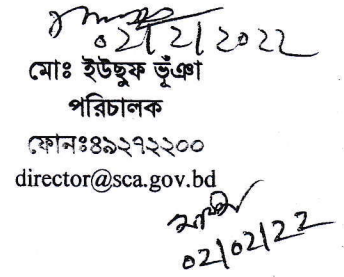 02/2/2022
মোঃ ইউছুফ ভূঁঞা
পরিচালক
ফোনঃ৪৯২৭২২০০
director@sca.gov.bd
02/02/22